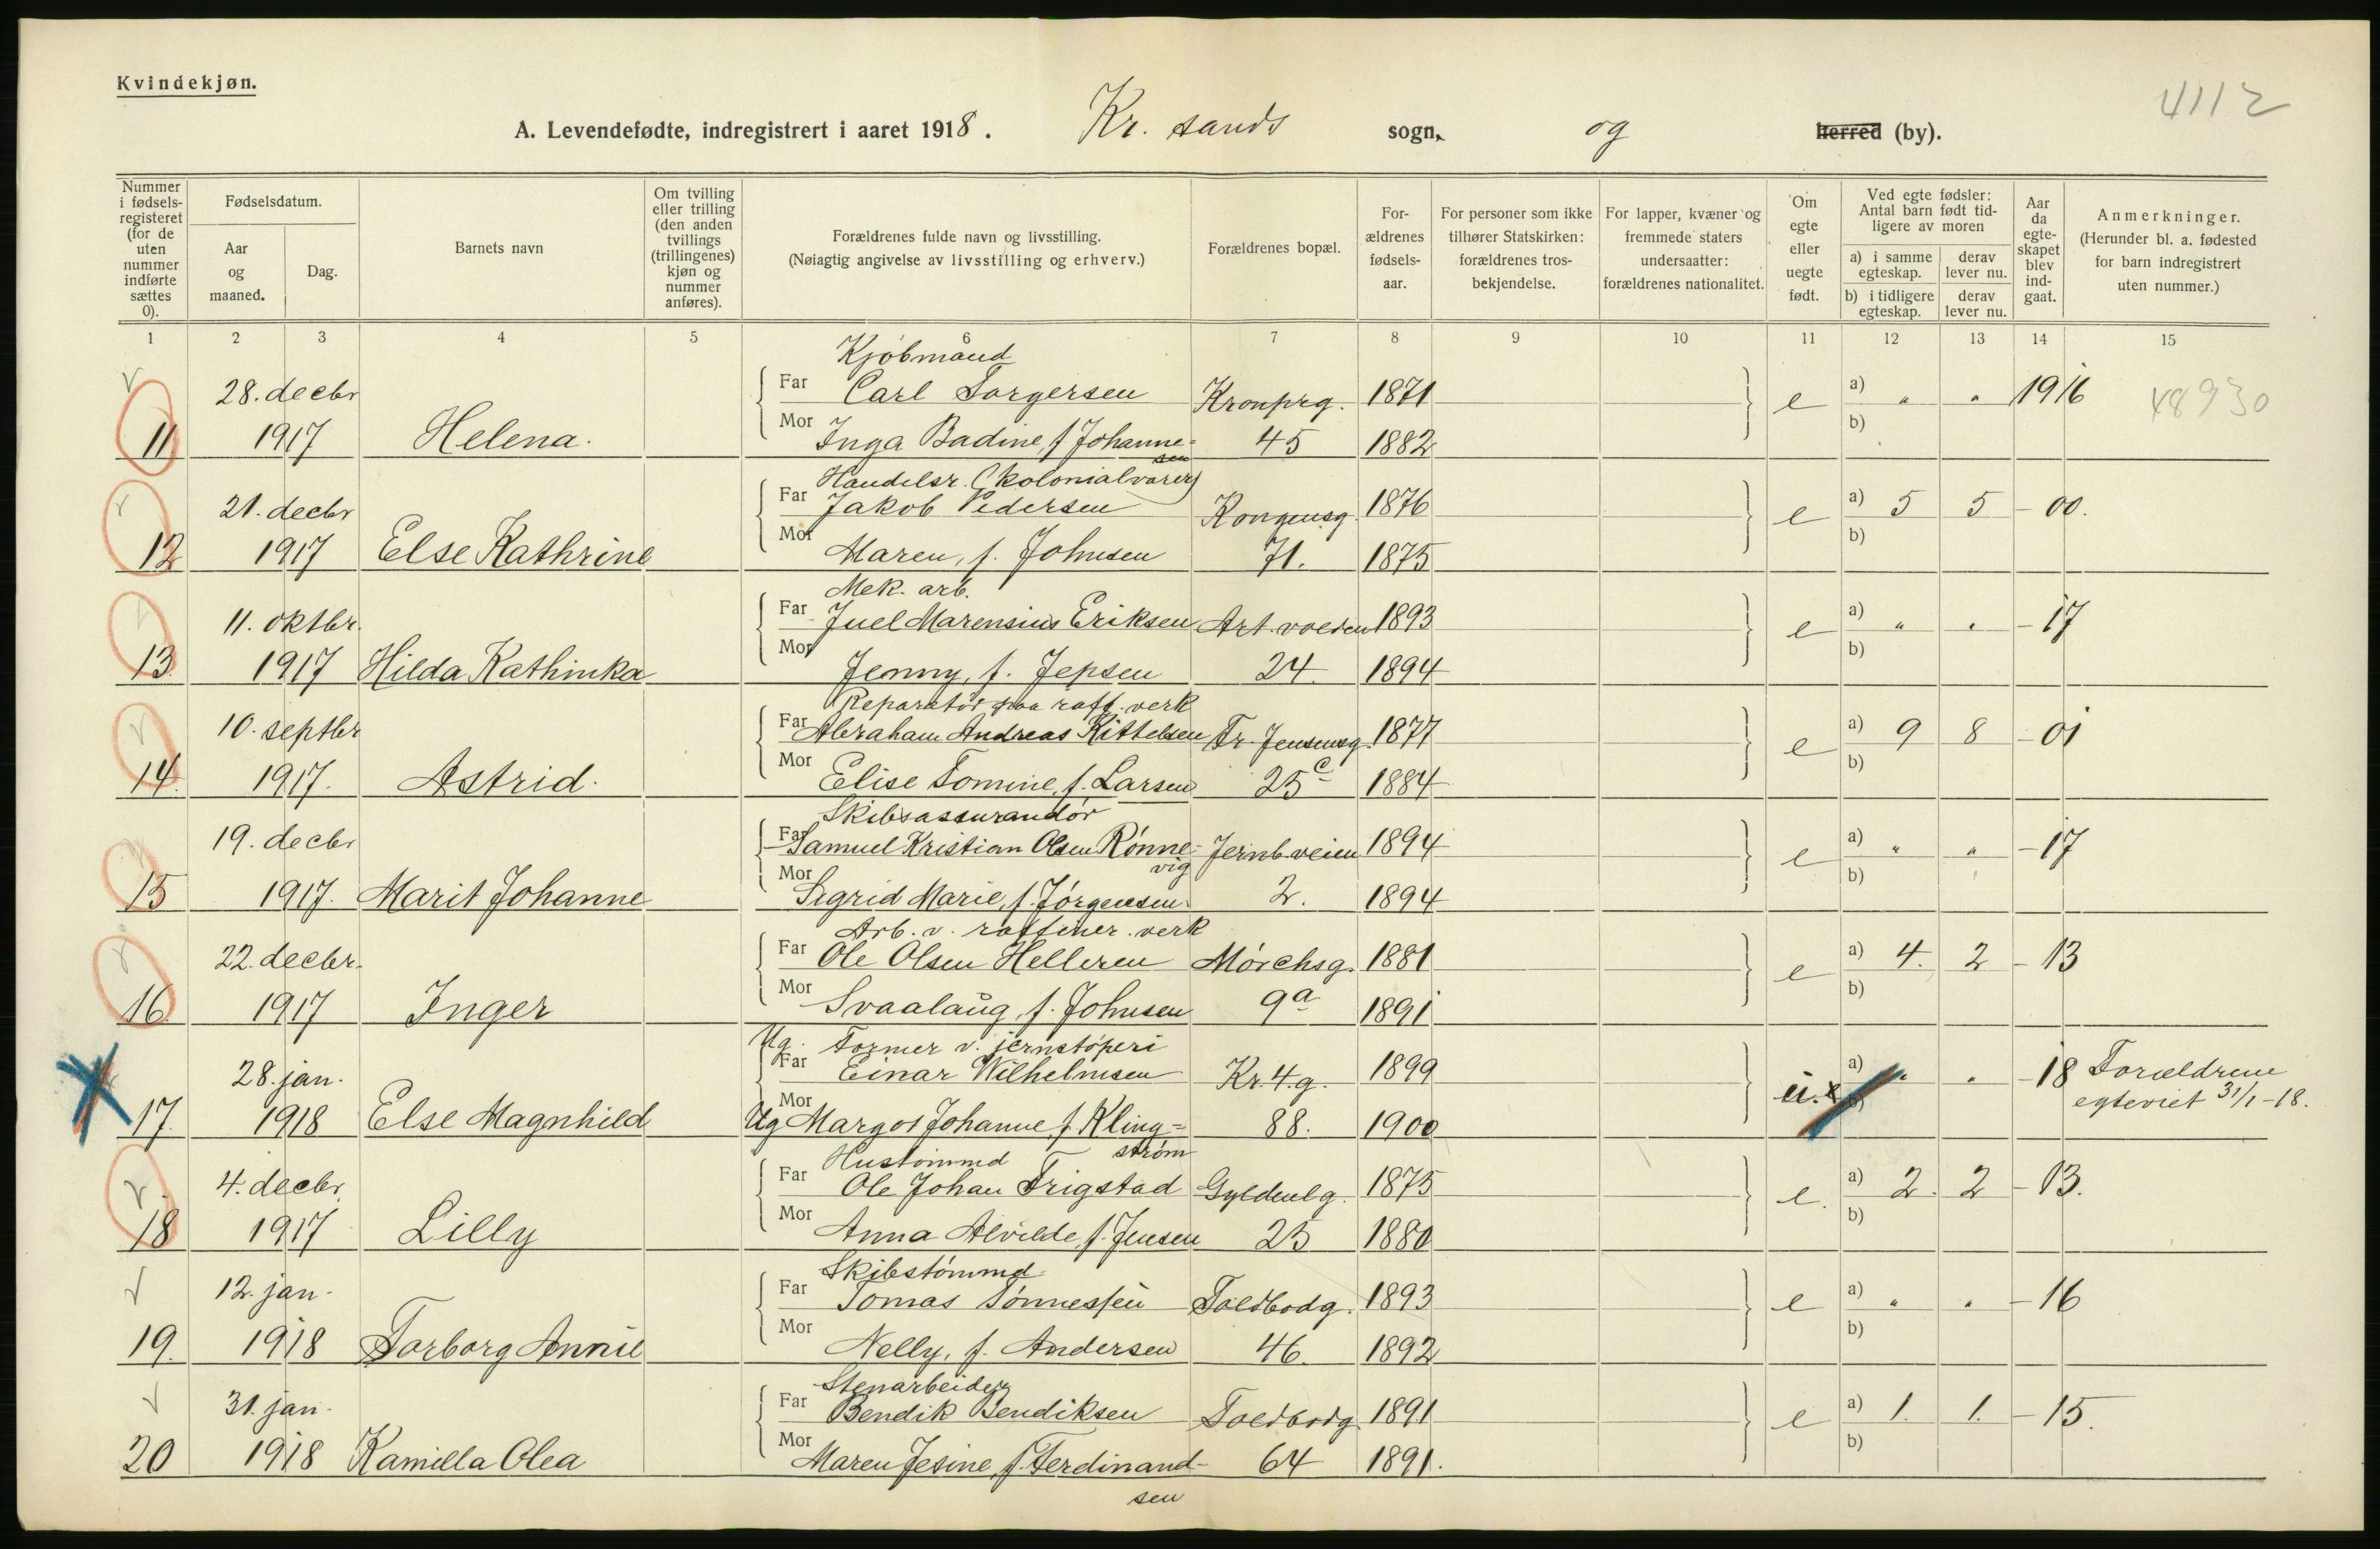 Kvindekjøn.
4112
A. Levendefødte, indregistrert i aaret 1918. Kr. sands sogn, og herred (by).
Nummer i fødsels-registeret (for de uten nummer indførte sættes 0).
Fødselsdatum.
Aar og maaned.
Dag.
Barnets navn
Om tvilling eller trilling (den anden tvillings (trillingenes) kjøn og nummer anføres).
Forældrenes fulde navn og livsstilling.
(Nøiagtig angivelse av livsstilling og erhverv.)
Forældrenes bopæl.
For-ældrenes fødsels-aar.
For personer som ikke tilhører Statskirken: forældrenes tros-bekjendelse.
For lapper, kvæner og fremmede staters undersaatter: forældrenes nationalitet.
Om egte eller uegte født.
Ved egte fødsler: Antal barn født tid-ligere av moren
a) i samme egteskap.
derav lever nu.
b) i tidligere egteskap.
derav lever nu.
Aar da egte-skapet blev ind-gaat.
Anmerkninger.
(Herunder bl. a. fødested for barn indregistrert uten nummer.)
1 2 3 4 5 6 7 8 9 10 11 12 13 14 15
Kjøbmand
28. decbr Far Carl Torgersen Kronprg. 1871 e a) " " 1916 48930
11 1917 Helena. Mor Inga Badine, f Johanne= 45 1882 b)
sen
Handelsr. (kolonialvarer)
21. decbr Far Jakob Pedersen Kongensg. 1876 e a) 5 5 - 00.
12 1917 Else Kathrine Mor Maren, f. Johnsen 71. 1875 b)
Mek. arb.
11. oktbr. Far Juel Marensius Eriksen Art. volden 1893 e a) " " - 17
13. 1917 Hilda Kathinka Mor Jenny, f. Jepsen 24. 1894 b)
Reparatør paa raff. verk
10. septbr Far Abraham Andreas Kittelsen Fr. Jensensg. 1877 e a) 9 8 - 01
14. 1917. Astrid. Mor Elise Tomine, f. Larsen 25 c 1884 b)
Skibsassurandør
19. decbr Far Samuel Kristian Olsen Rønne- Jernb. veien 1894 e a) " " - 17
vig
15 1917. Marit Johanne Mor Sigrid Marie, f. Jørgensen. 2. 1894 b)
Arb. v. raffiner. verk
22. decbr. Far Ole Olsen Helleren Mørchsg. 1881 e a) 4. 2 - 13
16. 1917 Inger Mor Svaalaug, f. Johnsen 9 a 1891 b)
Ug. Former v. jernstøperi
28. jan. Far Einar Wilhelmsen Kr. 4. g. 1899 u. e a) " " - 18 Forældrene
17. 1918 Else Magnhild Mor Ug Margot Johanne, f Kling= 88. 1900 b) egteviet 31/1-18.
strøm
Hustømmd
4. decbr. Far Ole Johan Trigstad Gyldenlg. 1875 e. a) 2. 2 - 13.
18. 1917 Lilly Mor Anna Alvilde, f. Jensen 25 1880 b)
Skibstømmd
12. jan. Far Tomas Tønnessen Toldbodg. 1893 e a) " " - 16
19. 1918 Torborg Annie Mor Nelly, f. Andersen 46. 1892 b)
Stenarbeider
31. jan. Far Bendik Bendiksen Toldbodg. 1891 e a) 1. 1. - 15.
20 1918 Kamilla Olea Mor Maren Jesine, f. Ferdinand- 64 1891. b)
sen